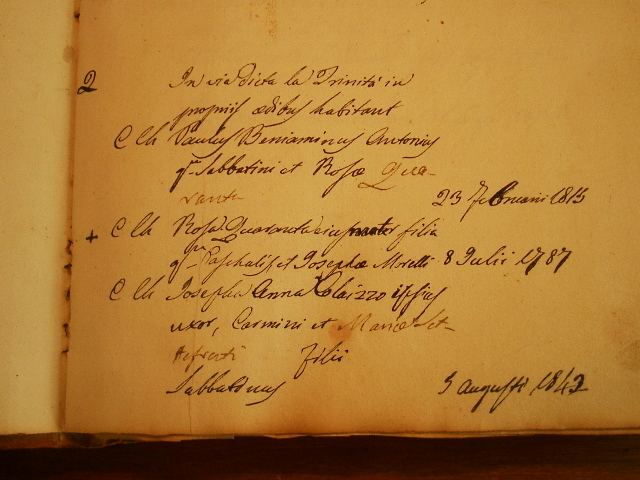 2 In via dicta la Trinità in
propriis ædibus habitant
C Ch Paulus Beniaminus Antonius
qm Sabbatini et Rosæ Qua-
ranta 23 Februarii 1815
+ C Ch Rosa Quaranta eius mater filia
qm Paschalis et Josephæ Morelli 8 Julii 1787
C Ch Josepha Anna Colaizzo ipsius
uxor, Carmini et Mariæ Set-
tefrati filii
Sabbatinus 5 Augusti 1842